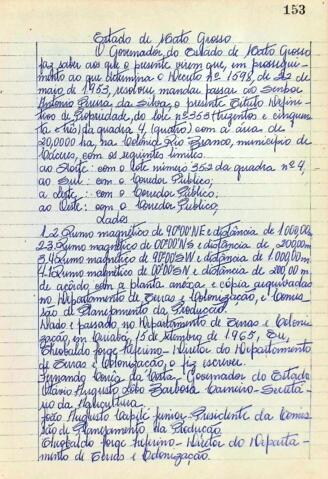 153
Estado de Mato Grosso
O Governador do Estado de Mato Grosso
faz saber aos que o presente virem que, em prossegui-
mento ao que determina o Decreto nº 1598, de 22 de
maio de 1953, resolveu mandar passar ao Senhor
Antonio Pereira da Silva, o presente Título Defini-
tivo de Propriedade, do lote nº 353 (trezentos e cinquen-
ta e três) da quadra 4 (quatro) com a área de
20,0000 ha, na Colônia Rio Branco, município de
Cáceres, com os seguintes limites.
ao Norte: com o lote número 352 da quadra nº 4,
ao Sul: com o Corredor Público,
a Leste: com o Corredor Público,
ao Oeste: com o Corredor Público,
Lados
1.2 Rumo magnético de 90º00'NE e distância de 1.000,00m.
2.3 Rumo magnético de 00º00'NS e distância de 200,00m
3.4 Rumo magnético de 90º00'SW e distância de 1.000,00m.
4.1 Rumo magnético de 00º00'SN e distância de 200,00 m,
de acordo com a planta anexa, e cópia arquivadas
no Departamento de Terras e Colonização, e Comis-
são de Planejamento da Producção.
Dado e passado no Departamento de Terras e Coloni-
zação, em Cuiabá, 15 de Setembro de 1965, Eu,
Theobaldo Jorge - Diretor do Departamento
de Terras e Colonização, o fiz escrever.
Fernando Corrêa da Costa - Governador do Estado
Augusto Lobo Barbosa Carneiro - Secretá-
rio da Agricultura.
João Augusto Capilé Júnior - Presidente da Comis-
são de Planejamento da Produção.
Theobaldo Jorge - Diretor do Departa-
mento de Terras e Colonização.